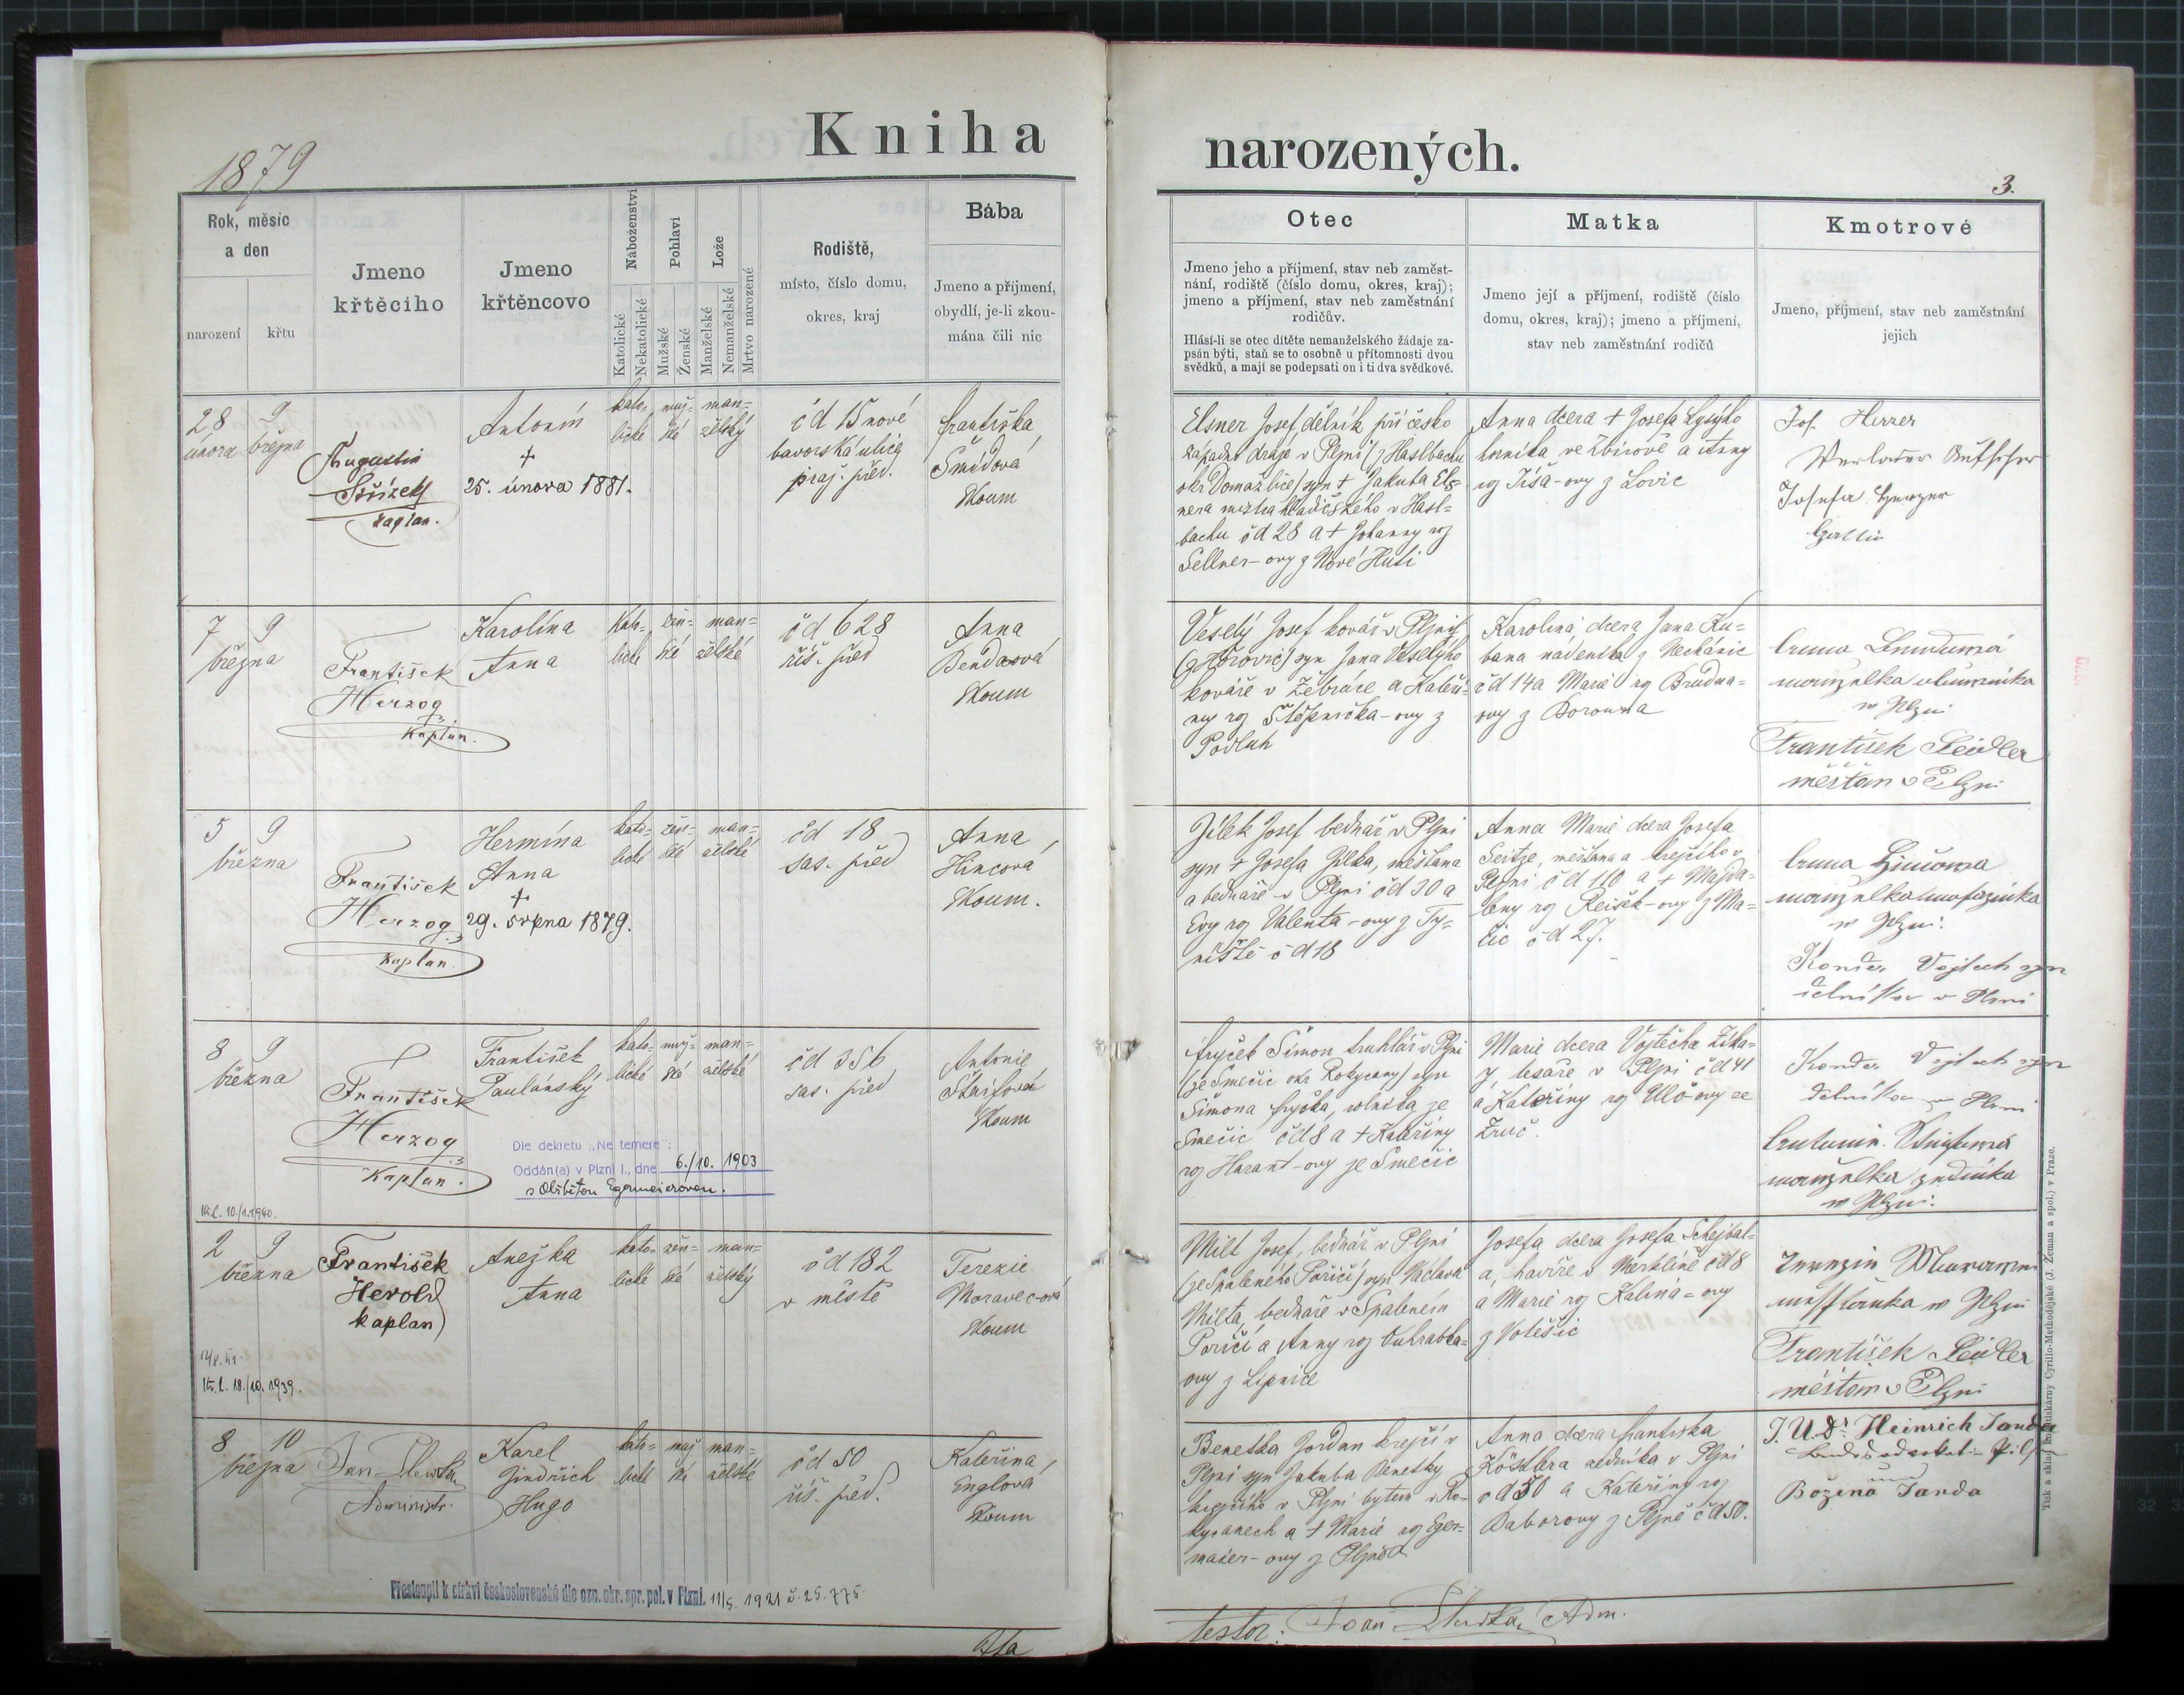 Kniha
narozených.
1879
3.
Rok, měsíc
a den
narození
křtu
Jmeno
křtěcího
Jmeno
křtěncovo
Náboženství
Katolické
Nekatolické
Pohlaví
Mužské
Ženské
Lože
Manželské
Nemanželské
Mrtvo narozené
Rodiště,
místo, číslo domu,
okres, kraj
Bába
Jmeno a příjmení,
obydlí, je-li zkou-
mána čili nic
Otec
Jmeno jeho a příjmení, stav neb zaměst-
nání, rodiště (číslo domu, okres, kraj);
jmeno a příjmení, stav neb zaměstnání
rodičův.
Hlásí-li se otec dítěte nemanželského žádaje za-
psán býti, staň se to osobně u přítomnosti dvou
svědků, a mají se podepsati on i ti dva svědkové.
Matka
Jmeno její a příjmení, rodiště (číslo
domu, okres, kraj); jmeno a příjmení,
stav neb zaměstnání rodičů
Kmotrové
Jmeno, příjmení, stav neb zaměstnání
jejich
28 9
února března
Augustin
kaplan.
Antonín
+
25. února 1881.
kato- muž- man-
lické ské želský
čd 15 nové
bavorská ulice
praž. před.
Františka
Šmídová
zkoum
Elsner Josef dělník při česko
západní dráze v Plzni (z Haslbachu
okr Domažlice) syn + Jakuba Els-
nera mistra v Hasl-
bachu čd 28 a + Johanny roz
Sellner-ovy z Nové Huti
Anna dcera + Josefa Lysýho
horníka ve Zbirově a Anny
roz Tíša-ovy z Lovic
Jos. Herzer
Josefa Herzer
Gattin
7 9
března
František
Herzog
kaplan.
Karolína
Anna
kato- žen- man-
lické ské želské
čd 628
říš. před
Anna
Bendaová
zkoum
Veselý Josef kovář v Plzni
(z Hořovic) syn Jana Veselýho
kováře v Žebráce a Kateři-
ny roz Štěpnička-ovy z
Podluh
Karolina dcera Jana Ku-
bana nádeníka z Nechánic
čd 14 a Marie roz Brudna-
ovy z Borovna
Anna
manželka
w Plzni
František Seidler
měšťan v Plzni
5 9
března
František
Herzog
kaplan.
Hermína
Anna
+
29. srpna 1879.
kato- žen- man-
lické ské želské
čd 18
sas. před
Anna
Hincová
zkoum.
Jílek Josef bednář v Plzni
syn + Josefa Jílka, měšťana
a bednáře v Plzni čd 30 a
Evy roz Valenta-ovy z Tý-
niště čd 18
Anna Marie dcera Josefa
Seitze, měšťana a krejčího v
Plzni čd 110 a + Majda-
leny roz Reišek-ovy z Ma-
čic čd 27.
Anna
manželka
w Plzni:
Vojtech syn
v Plzni
8 9
března
František
Herzog
kaplan.
František
Paulánský
kato- muž- man-
lické ské želské
čd 356
sas. před
Antonie
zkoum
Dle dekretu „Ne temere":
Oddán(a) v Plzni I., dne 6./10. 1903
s Alžbětou Egermeierovou.
10./1. 1940.
Fryček Šimon truhlář v Plzni
(ze Smečic okr Rokycany) syn
Šimona Fryčka, rolníka ze
Smečic čd 8 a + Kateřiny
roz Harant-ovy ze Smečic
Marie dcera Vojtěcha Zíka-
y tesaře v Plzni čd 41
a Kateřiny roz Ulč-ovy ze
Zruč.
Vojtech syn
v Plzni
manželka zedníka
w Plzni:
2 9
března
František
Herold
kaplan
Anežka
Anna
kato- žen- man-
lické ské želský
čd 182
v městě
Terezie
Moravec-ová
zkoum
18./10. 1939.
Milt Josef, bednář v Plzni
(ze Spáleného Poříčí) syn Václava
Milta, bednáře v Spáleném
Poříčí a Anny roz
ovy z Lipnice
Josefa dcera Josefa Schejbal-
a, havíře v Merklíně čd 8
a Marie roz Kalina-ovy
z Votěšic
w Plzni
František Seidler
měšťan v Plzni
8 10
března
Jan
Administr.
Karel
Jindřich
Hugo
kato- muž man-
lické ské želské
čd 50
říš. před.
Kateřina
Englová
zkoum
Benetka Jordan krejčí v
Plzni syn Jakuba Benetky
krejčího v Plzni bytem v Ro-
kycanech a + Marie roz Eger-
maier-ovy z Plzně
Anna dcera Františka
Köstlera zedníka v Plzni
čd 50 a Kateřiny roz
Baborovy z Plzně čd 50.
J. U. Dr. Heinrich Janda
und
Božena Janda
Přestoupil k církvi československé dle ozn. okr. spr. pol. v Plzni. 11/5. 1921 č. 25.775.
testor: Joan Adm.
Tisk a sklad knihtiskárny Cyrillo-Methodějské (J. Zeman a spol.) v Praze.